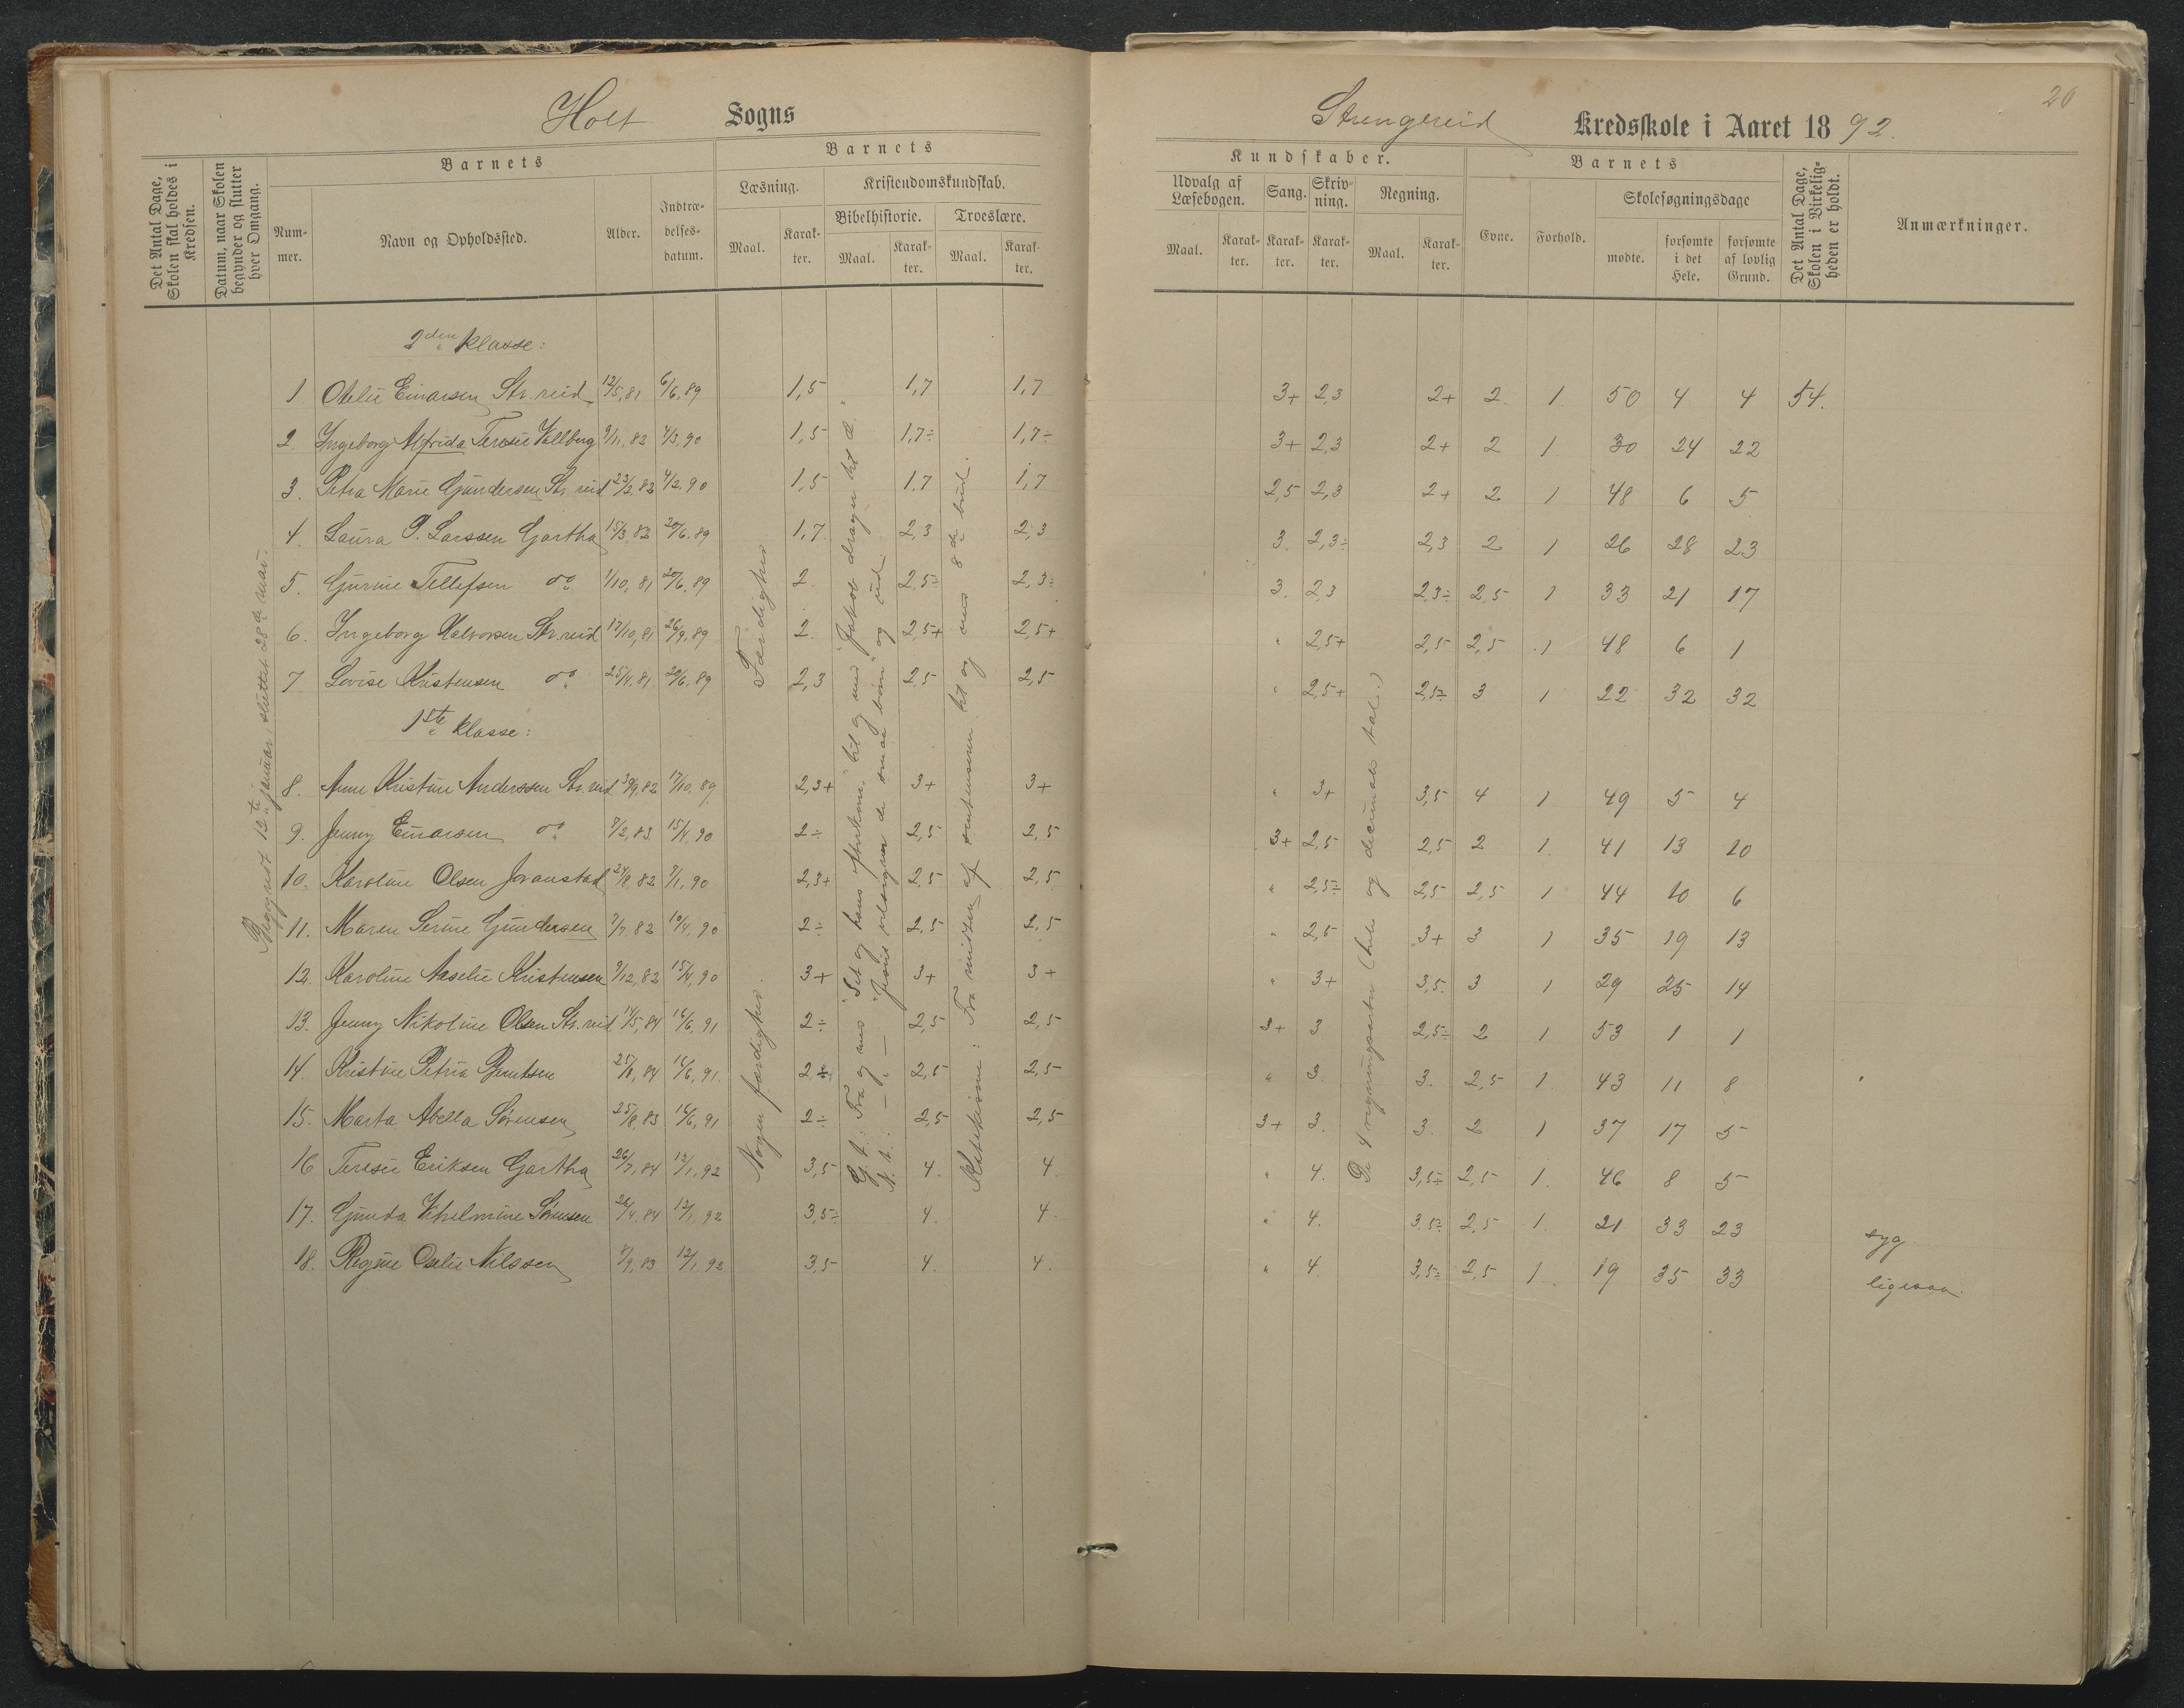 Holt Sogns
Strengereid Kredsskole i Aaret 1892.
20
Det Antal Dage, Skolen skal holdes i Kredsen.
Datum, naar Skolen begynder og slutter hver Omgang.
Barnets
Nummer.
Navn og Opholdssted.
Alder.
Indtrædelses-datum.
Barnets
Læsning.
Maal.
Karakter.
Kristendomskundskab.
Bibelhistorie.
Maal.
Karakter.
Troeslære.
Maal.
Karakter.
Kundskaber.
Udvalg af Læsebogen.
Maal.
Karakter.
Sang.
Karakter.
Skrivning.
Karakter.
Regning.
Maal.
Karakter.
Barnets
Evne.
Forhold.
Skolesøgningsdage
mødte.
forsømte i det Hele.
forsømte af lovlig Grund.
Det Antal Dage, Skolen i Virkeligheden er holdt.
Anmærkninger.
Begyndt 12te januar, sluttet 28de mai.
2den klasse:
1 Otelie Einarsen Str. reid 12/5,81 6/6,89 1,5 1,7 1,7 3+ 2,3 2+ 2. 1. 50 4 4 54.
2. Ingeborg Alfrida Teresie Vallberg 9/11,82 4/3,90 1,5 1,7÷ 1,7÷ 3+ 2,3 2+ 2 1. 30 24 22
3. Petra Marie Gundersen Str. reid 23/2,82 4/2,90 1,5 1,7 1,7 2,5 2,3 2+ 2 1 48 6 5
4. Laura P. Larssen Gartha 15/3,82 20/6,89 1,7. 2,3 2,3 3. 2,3÷ 2,3 2 1 26 28 23
5. Gurine Tellefsen do 1/10,81 20/6,89 2. 2,5÷ 2,3÷ 3. 2,3 2,3÷ 2,5 1 33 21 17
6. Ingeborg Halvorsen Str. reid 17/10,81 26/9,89 2. 2,5+ 2,5+ " 2,5+ 2,5 2,5 1 48 6 1
7 Lovise Kristensen do 25/4,81 20/6,89 2,3 2,5 2,5 " 2,5+ 2,5÷ 3 1 22 32 32
1ste klasse:
8. Anne Kristine Anderssen Str. reid 30/9,82 17/10,89 2,3+ 3+ 3+ " 3+ 3,5 4 1 49 5 4
9. Jenny Einarsen do 7/2,83 15/4,90 2÷ 2,5 2,5 3+ 2,5 2,5 2 1. 41 13 10
10. Karoline Olsen Joranstad 24/8,82 7/1,90 2,3+ 2,5 2,5 " 2,5÷ 2,5 2,5 1 44 10 6
11. Maren Serine Gundersen 7/7,82 10/4,90 2÷ 2,5 2,5 " 2,5 3+ 3 1 35 19 13
12. Karoline Aaselie Kristensen 9/12,82 15/4,90 3+ 3+ 3+ " 3+ 3,5. 3 1 29 25 14
13. Jenny Nikoline Olsen Str. reid 14/5,84 16/6,91 2÷ 2,5 2,5 3+ 3 2,5÷ 2 1 53 1 1
14. Kristine Petria Berntsen 25/8,84 16/6,91. 2÷ 2,5 2,5 " 3. 3. 2,5 1. 43 11 8
15. Marta Abella Sørensen 25/8,83 16/6,91 2÷ 2,5 2,5 3+ 3. 3. 2 1 37 17 5
16 Teresie Eriksen Gartha 26/7,84 12/1,92 3,5 4. 4. " 4. 3,5÷ 2,5 1. 46 8 5
17. Gunda Vihelmine Sørensen 26/4,84 12/1,92 3,5÷ 4. 4. " 4. 3,5÷ 2,5 1. 21 33 23 syg.
18. Regine Oselie Nilssen 8/9,83 12/1,92 3,5 4. 4. " 4. 3,5÷ 2,5 1. 19 35 33 ligesaa.
Færdighed
Nogen færdighed.
G. t.: Fra og med "Set og hans efterkom." til og med "Jakob drager til Æ."
N. t.: — " — "Jesus velsigner de smaa børn" og ud.
Katekisme: Fra midten af sentensen til og med 8de bud.
De 4 regningsarter (hele og decimale tal.)